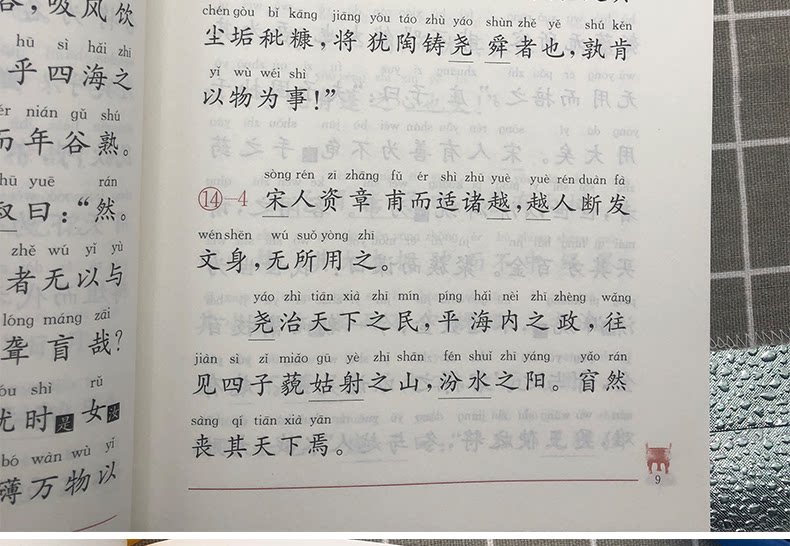 谷，吸风饮
hū sì hǎi zhī
乎四海之
ér nián gǔ shú
而年谷熟。
shū yuē rán
叔曰：“然。
zhě wú yǐ yù
者无以与
lóng máng zāi
聋盲哉？
óu shì rǔ
犹时是女汝
bó wàn wù yǐ
薄万物以
chén gòu bǐ kāng jiāng yóu táo zhù yáo shùn zhě yě shú kěn
尘垢秕糠，将犹陶铸尧舜者也，孰肯
yǐ wù wéi shì
以物为事！”
sòng rén zī zhāng fǔ ér shì zhū yuè yuè rén duàn fà
⑭-4 宋人资章甫而适诸越，越人断发
wén shēn wú suǒ yòng zhī
文身，无所用之。
yáo zhì tiān xià zhī mín píng hǎi nèi zhī zhèng wǎng
尧治天下之民，平海内之政，往
jiàn sì zǐ miǎo gū yè zhī shān fén shuǐ zhī yáng yǎo rán
见四子藐姑射之山，汾水之阳。窅然
sàng qí tiān xià yān
丧其天下焉。
9